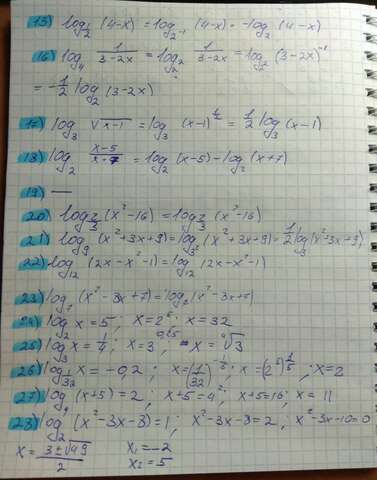 15) log_{1/2} (4-x) = log_{2^{-1}} (4-x) = -log_2 (4-x)
16) log_4 1/(3-2x) = log_{2^2} 1/(3-2x) = log_{2^2} (3-2x)^{-1}
= -1/2 log_2 (3-2x)
17) log_3 √(x-1) = log_3 (x-1)^{1/2} = 1/2 log_3 (x-1)
18) log_2 (x-5)/(x+7) = log_2 (x-5) - log_2 (x+7)
19) —
20) log_{2/3} (x²-16) = log_{2/3} (x²-16)
21) log_9 (x²+3x+9) = log_{3^2} (x²+3x+9) = 1/2 log_3 (x²+3x+9)
22) log_{12} (2x-x²-1) = log_{12} (2x-x²-1)
23) log_7 (x²-8x+7) = log_7 (x²-8x+7)
24) log_2 x = 5; x = 2^5; x = 32
25) log_3 x = 1/4; x = 3^{0,25}; x = ⁴√3
26) log_{1/32} x = -0,2; x = (1/32)^{-1/5}; x = (2^5)^{1/5}; x = 2
27) log_4 (x+5) = 2; x+5 = 4²; x+5 = 16; x = 11
28) log_2 (x²-3x-8) = 1; x²-3x-8 = 2; x²-3x-10 = 0
x = (3±√49)/2 x_1 = -2
x_2 = 5